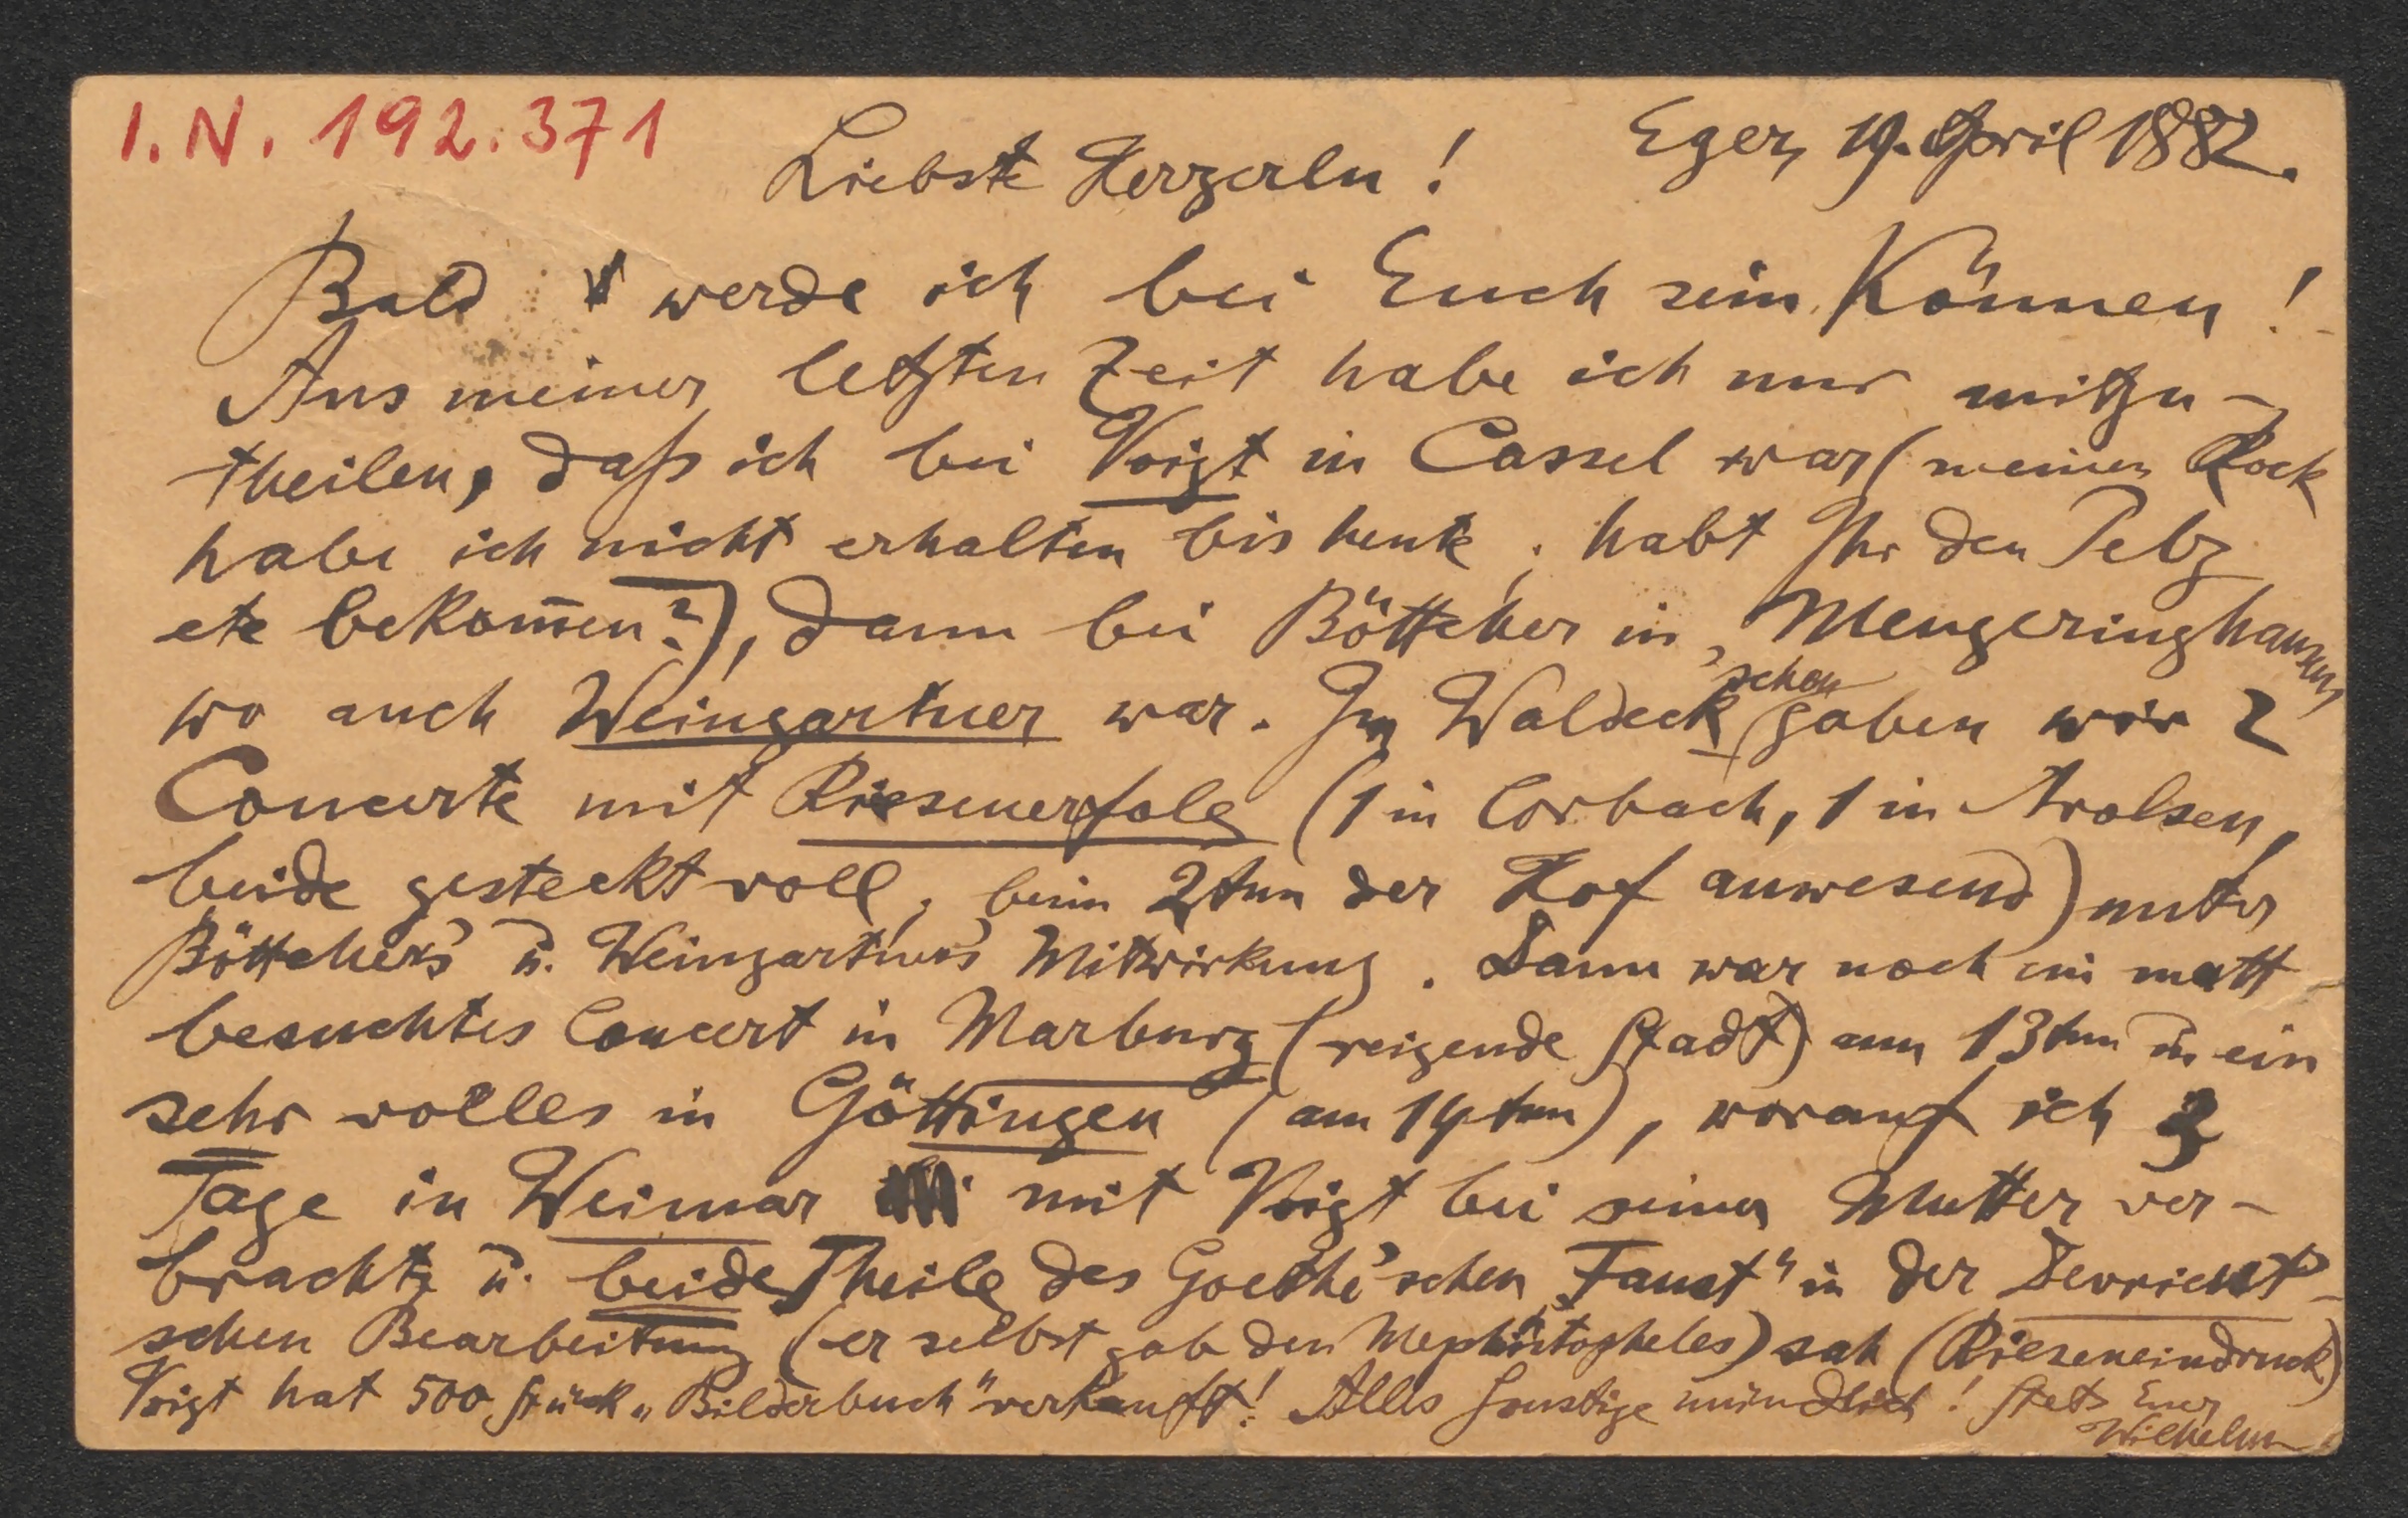 I.N. 192.371
Eger, 19. April 1882.
Liebste Herzerln!
Bald werde ich bei Euch sein Können!
Aus meiner letzten Zeit habe ich nur mitzu-
theilen, daß ich bei Voigt in Cassel war (meinen Rock
habe ich nicht erhalten bis heute; habt Ihr den Pelz
etc bekom̅en?), dann bei Böttcher in Mengeringhausen,
wo auch Weingartner war. Im Waldeck'schen gaben wir 2
Concerte mit Riesenerfolg (1 in Corbach, 1 in Arolsen,
beide gesteckt voll, beim 2ten der Hof anwesend) unter
Böttcher's u. Weingartner's Mitwirkung. Dann war noch ein matt
besuchtes Concert in Marburg (reizende Stadt) am 13ten u. ein
sehr volles in Göttingen (am 14ten), worauf ich 3
Tage in Weimar mit Voigt bei seiner Mutter ver-
brachte u. beide Theile des Goethe'schen „Faust" in der Devrient-
schen Bearbeitung (er selbst gab den Mephistopheles) sah (Rieseneindruck)
Voigt hat 500 Stück „Bilderbuch" verkauft! Alles Sonstige mündlich! Stets Euer
Wilhelm